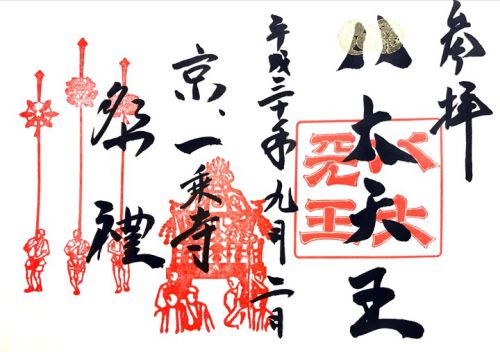 参拝
八大天王
八大
天王
平成三十年九月二日
京、一乗寺
祭禮